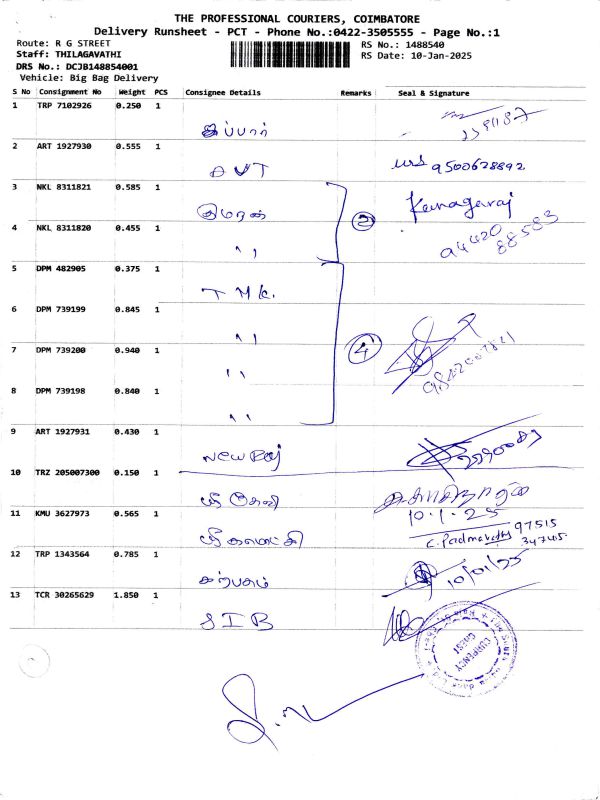 THE PROFESSIONAL COURIERS, COIMBATORE
Delivery Runsheet - PCT - Phone No.:0422-3505555 - Page No.:1
Route: R G STREET
Staff: THILAGAVATHI
DRS No.: DCJB148854001
Vehicle: Big Bag Delivery
RS No.: 1488540
RS Date: 10-Jan-2025
S No Consignment No Weight PCS Consignee Details Remarks Seal & Signature
1 TRP 7102926 0.250 1
2 ART 1927930 0.555 1
AVT 9500628892
3 NKL 8311821 0.585 1
Kanagaraj
4 NKL 8311820 0.455 1
,, 94420 88583
5 DPM 482905 0.375 1
TMK.
6 DPM 739199 0.845 1
,,
7 DPM 739200 0.940 1
4
,,
8 DPM 739198 0.840 1
,,
9 ART 1927931 0.430 1
New Raj
10 TRZ 205007300 0.150 1
ஸ்ரீ தேவி
11 KMU 3627973 0.565 1
10.1.25
ஸ்ரீ காமாட்சி C. Padmavathy 97515
34745
12 TRP 1343564 0.785 1
கற்பகம் 10/01/25
13 TCR 30265629 1.850 1
SIB
CURRENCY
CHEST